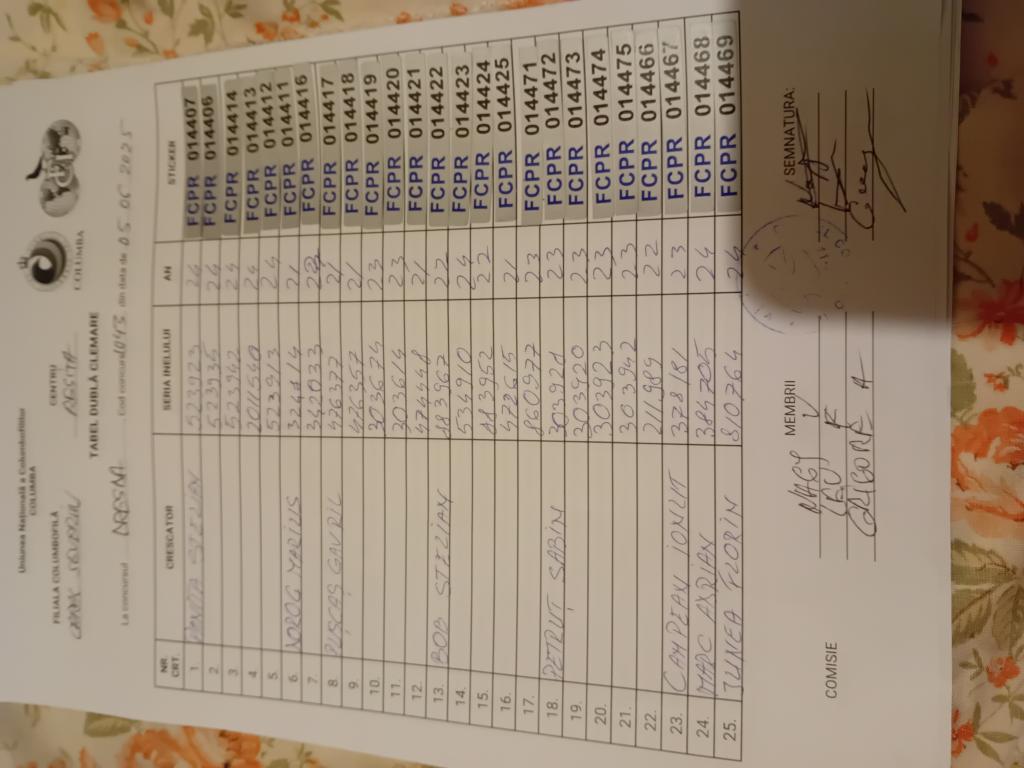 Uniunea Națională a Columbofililor
COLUMBA
FILIALA COLUMBOFILĂ CENTRU
CARAS SEVERIN RESITA
COLUMBA
TABEL DUBLĂ CLEMARE
La concursul Cod concurs din data de 05.06.2025
NR. CRT. CRESCATOR SERIA INELULUI AN STICKER
1. 523923 24 FCPR 014407
2. 523936 24 FCPR 014406
3. 523942 24 FCPR 014414
4. 2011540 24 FCPR 014413
5. 523913 24 FCPR 014412
6. NOROC MARIUS 21 FCPR 014411
7. 342033 FCPR 014416
8. PUȘCAȘ GAVRIL 426377 21 FCPR 014417
9. 426357 21 FCPR 014418
10. 303674 23 FCPR 014419
11. 303614 23 FCPR 014420
12. 474448 21 FCPR 014421
13. BOB STELIAN 483967 22 FCPR 014422
14. 534910 24 FCPR 014423
15. 483952 22 FCPR 014424
16. 472615 21 FCPR 014425
17. 860977 23 FCPR 014471
18. PETRUȚ SABIN 303921 23 FCPR 014472
19. 303920 23 FCPR 014473
20. 303923 23 FCPR 014474
21. 303942 23 FCPR 014475
22. 211989 22 FCPR 014466
23. CAMPEAN IONUT 378181 23 FCPR 014467
24. MARC ADRIAN 384705 24 FCPR 014468
25. TUNEA FLORIN 810764 24 FCPR 014469
COMISIE MEMBRII SEMNATURA: